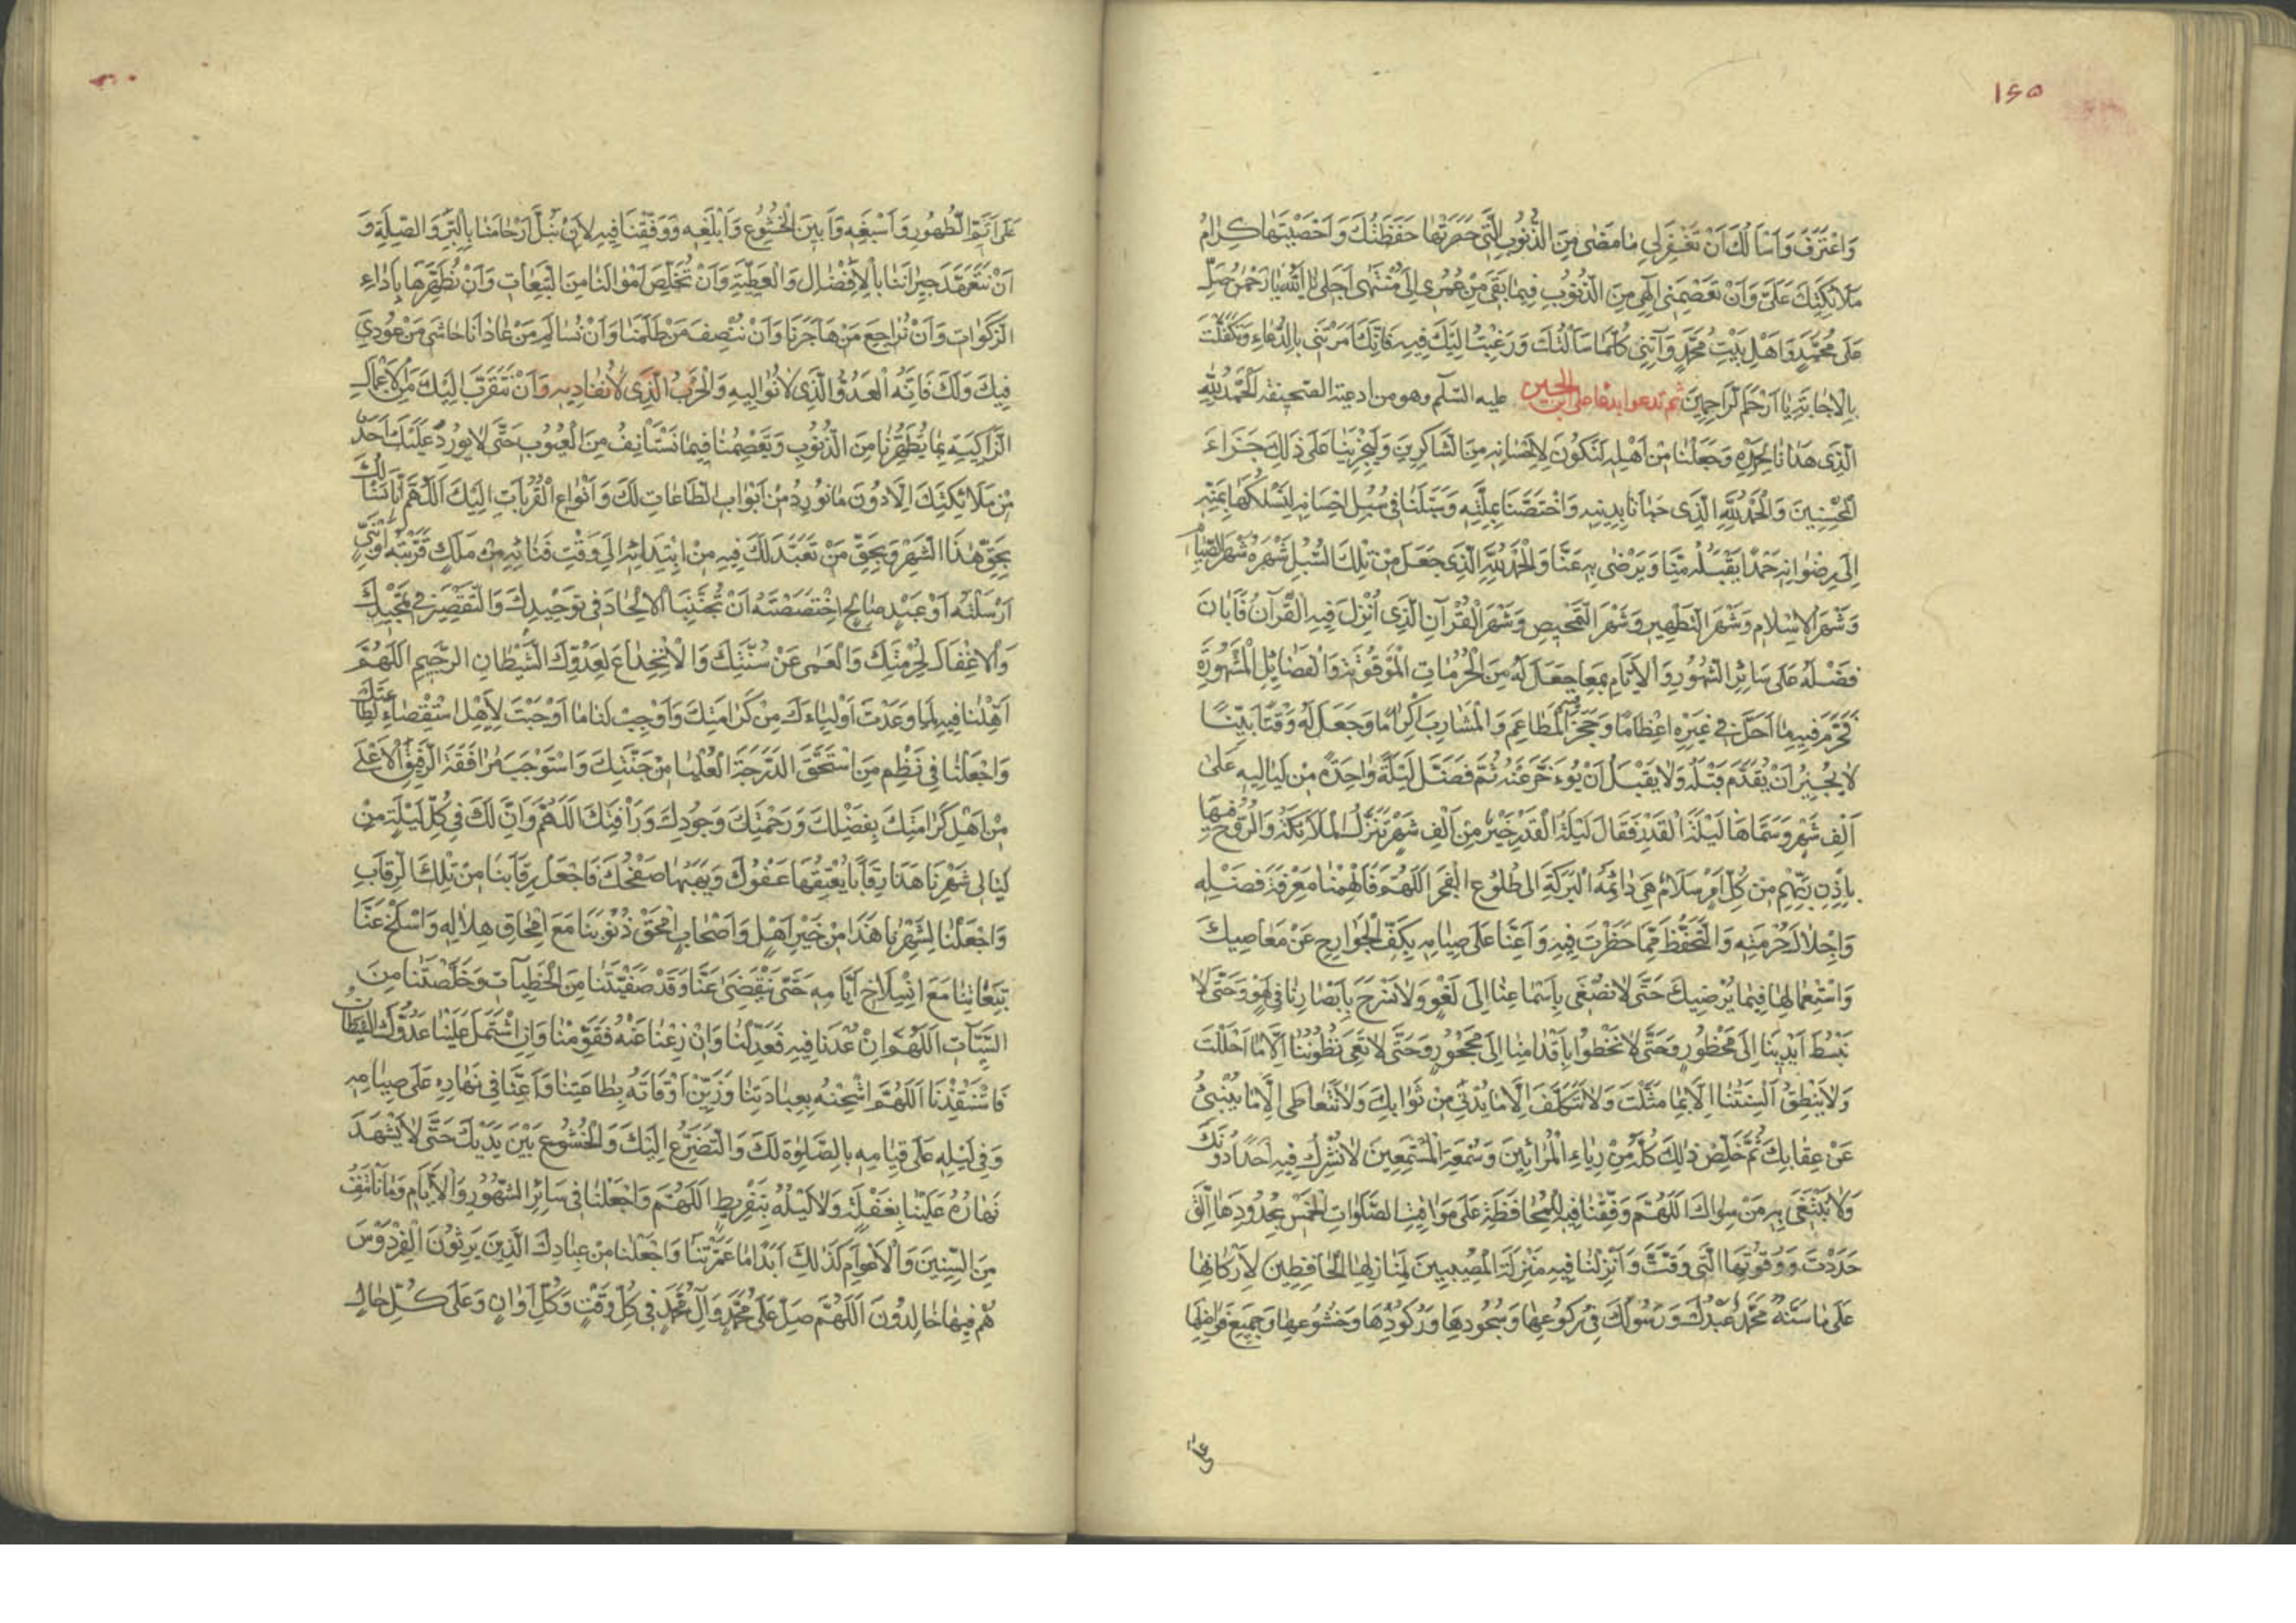 ١٤٥
وَاعْتَرَفَ وَاَسْاَلُكَ اَنْ تَغْفِرَ لِي مٰا مَضٰى مِنَ الذُّنُوبِ الَّتِي حَصَرَتْهٰا حَفَظَتُكَ وَاَحْصَيْتَهٰا كِرٰامُ
مَلٰائِكَتِكَ عَلَيَّ وَاَنْ تَعْصِمَنِي اِلٰهِي مِنَ الذُّنُوبِ فِيمٰا بَقِيَ مِنْ عُمُرِي اِلٰى مُنْتَهٰى اَجَلِي يٰا اَللّٰهُ يٰا رَحْمٰنُ صَلِّ
عَلٰى مُحَمَّدٍ وَاَهْلِ بَيْتِ مُحَمَّدٍ وَآتِنِي كُلَّمٰا سَاَلْتُكَ وَرَغِبْتُ اِلَيْكَ فِيهِ فَاِنَّكَ اَمَرْتَنِي بِالدُّعٰاءِ وَتَكَفَّلْتَ
بِالْاِجٰابَةِ يٰا اَرْحَمَ الرّٰاحِمِينَ ثم تدعوا بدعا علي بن الحسين عليه السّلام وهو من ادعية الصحيفة اَلْحَمْدُ لِلّٰهِ
الَّذِي هَدٰانٰا لِحَمْدِهِ وَجَعَلَنٰا مِنْ اَهْلِهِ لِنَكُونَ لِاِحْسٰانِهِ مِنَ الشّٰاكِرِينَ وَلِيَجْزِيَنٰا عَلٰى ذٰلِكَ جَزٰاءَ
الْمُحْسِنِينَ وَالْحَمْدُ لِلّٰهِ الَّذِي حَبٰانٰا بِدِينِهِ وَاخْتَصَّنٰا بِمِلَّتِهِ وَسَبَّلَنٰا فِي سُبُلِ اِحْسٰانِهِ لِنَسْلُكَهٰا بِمَنِّهِ
اِلٰى رِضْوٰانِهِ حَمْدًا يَقْبَلُهُ مِنَّا وَيَرْضٰى بِهِ عَنَّا وَالْحَمْدُ لِلّٰهِ الَّذِي جَعَلَ مِنْ تِلْكَ السُّبُلِ شَهْرَهُ شَهْرَ الصِّيٰامِ
وَشَهْرَ الْاِسْلٰامِ وَشَهْرَ التَّطْهِيرِ وَشَهْرَ التَّمْحِيصِ وَشَهْرَ الْقُرْآنِ الَّذِي اُنْزِلَ فِيهِ الْقُرْآنُ فَاَبٰانَ
فَضْلَهُ عَلٰى سٰائِرِ الشُّهُورِ وَالْاَيّٰامِ بِمٰا جَعَلَ لَهُ مِنَ الْحُرُمٰاتِ الْمَوْفُورَةِ وَالْفَضٰائِلِ الْمَشْهُورَةِ
فَحَرَّمَ فِيهِ مٰا اَحَلَّ فِي غَيْرِهِ اِعْظٰامًا وَحَجَرَ فِيهِ الْمَطٰاعِمَ وَالْمَشٰارِبَ اِكْرٰامًا وَجَعَلَ لَهُ وَقْتًا بَيِّنًا
لٰا يُجِيزُ اَنْ يُقَدَّمَ قَبْلَهُ وَلٰا يَقْبَلُ اَنْ يُؤَخَّرَ عَنْهُ ثُمَّ فَضَّلَ لَيْلَةً وٰاحِدَةً مِنْ لَيٰالِيهِ عَلٰى
اَلْفِ شَهْرٍ وَسَمَّاهَا لَيْلَةَ الْقَدْرِ فَقَالَ لَيْلَةُ الْقَدْرِ خَيْرٌ مِنْ اَلْفِ شَهْرٍ تَنَزَّلُ الْمَلٰائِكَةُ وَالرُّوحُ فِيهَا
بِاِذْنِ رَبِّهِمْ مِنْ كُلِّ اَمْرٍ سَلٰامٌ هِيَ دٰائِمَةُ الْبَرَكَةِ اِلٰى طُلُوعِ الْفَجْرِ اَللّٰهُمَّ فَاَلْهِمْنٰا مَعْرِفَةَ فَضْلِهِ
وَاِجْلٰالَ حُرْمَتِهِ وَالتَّحَفُّظَ مِمَّا حَظَرْتَ فِيهِ وَاَعِنَّا عَلٰى صِيٰامِهِ بِكَفِّ الْجَوٰارِحِ عَنْ مَعٰاصِيكَ
وَاسْتِعْمٰالِهٰا فِيمٰا يُرْضِيكَ حَتّٰى لٰا نُصْغِيَ بِاَسْمٰاعِنٰا اِلٰى لَغْوٍ وَلٰا نُسْرِحَ بِاَبْصٰارِنٰا فِي لَهْوٍ وَحَتّٰى لٰا
نَبْسُطَ اَيْدِيَنٰا اِلٰى مَحْظُورٍ وَحَتّٰى لٰا نَخْطُوَا بِاَقْدٰامِنٰا اِلٰى مَحْجُورٍ وَحَتّٰى لٰا تَعِيَ بُطُونُنٰا اِلّٰا مٰا اَحْلَلْتَ
وَلٰا يَنْطِقَ اَلْسِنَتُنٰا اِلّٰا بِمٰا مَثَّلْتَ وَلٰا نَتَكَلَّفَ اِلّٰا مٰا يُدْنِي مِنْ ثَوٰابِكَ وَلٰا نَتَعٰاطَى اِلّٰا مٰا يُنْجِي
عَنْ عِقٰابِكَ ثُمَّ خَلِّصْ ذٰلِكَ كُلَّهُ مِنْ رِيٰاءِ الْمُرٰائِينَ وَسُمْعَةِ الْمُسْتَمِعِينَ لٰا نُشْرِكُ فِيهِ اَحَدًا دُونَكَ
وَلٰا نَبْتَغِيَ بِهِ مَنْ سِوٰاكَ اَللّٰهُمَّ وَفِّقْنٰا فِيهِ لِلْمُحٰافَظَةِ عَلٰى مَوٰاقِيتِ الصَّلَوٰاتِ الْخَمْسِ بِحُدُودِهٰا الَّتِي
حَدَدْتَ وَوُقُوتِهٰا الَّتِي وَقَّتَّ وَاَنْزِلْنٰا فِيهِ مَنْزِلَةَ الْمُصِيبِينَ لِمَنٰازِلِهٰا الْحٰافِظِينَ لِاَرْكٰانِهٰا
عَلٰى مٰا سَنَّهُ مُحَمَّدٌ عَبْدُكَ وَرَسُولُكَ فِي رُكُوعِهٰا وَسُجُودِهٰا وَخُشُوعِهٰا وَجَمِيعِ فَوٰاضِلِهٰا
عَلٰى
عَلٰى اَتَمِّ الطَّهُورِ وَاَسْبَغِهِ وَاَبْيَنِ الْخُشُوعِ وَاَبْلَغِهِ وَوَفِّقْنٰا فِيهِ لِاَنْ نَبُلَّ اَرْحٰامَنٰا بِالْبِرِّ وَالصِّلَةِ وَ
اَنْ نَتَعَهَّدَ جِيرٰانَنٰا بِالْاِفْضٰالِ وَالْعَطِيَّةِ وَاَنْ نُخَلِّصَ اَمْوٰالَنٰا مِنَ التَّبِعٰاتِ وَاَنْ نُطَهِّرَهٰا بِاَدٰاءِ
الزَّكَوٰاتِ وَاَنْ نُرٰاجِعَ مَنْ هٰاجَرَنٰا وَاَنْ نُنْصِفَ مَنْ ظَلَمَنٰا وَاَنْ نُسٰالِمَ مَنْ عٰادٰانٰا حٰاشٰى مَنْ عُودِيَ
فِيكَ وَلَكَ فَاِنَّهُ الْعَدُوُّ الَّذِي لٰا نُوٰالِيهِ وَالْحِزْبُ الَّذِي لٰا نُصٰافِيهِ وَاَنْ نَتَقَرَّبَ اِلَيْكَ مِنَ الْاَعْمٰالِ
الزّٰاكِيَةِ بِمٰا يُطَهِّرُنٰا مِنَ الذُّنُوبِ وَتَعْصِمُنٰا فِيمٰا نَسْتَاْنِفُ مِنَ الْعُيُوبِ حَتّٰى لٰا يُورِدَ عَلَيْكَ اَحَدٌ
مِنْ مَلٰائِكَتِكَ اِلّٰا دُونَ مٰا نُورِدُ مِنْ اَبْوٰابِ الطّٰاعَاتِ لَكَ وَاَنْوٰاعِ الْقُرُبٰاتِ اِلَيْكَ اَللّٰهُمَّ اِنّٰا نَسْاَلُكَ
بِحَقِّ هٰذَا الشَّهْرِ وَبِحَقِّ مَنْ تَعَبَّدَ لَكَ فِيهِ مِنْ ابْتِدٰائِهِ اِلٰى وَقْتِ فَنٰائِهِ مِنْ مَلَكٍ قَرَّبْتَهُ اَوْ نَبِيٍّ
اَرْسَلْتَهُ اَوْ عَبْدٍ صٰالِحٍ اخْتَصَصْتَهُ اَنْ تُجَنِّبَنَا الْاِلْحٰادَ فِي تَوْحِيدِكَ وَالتَّقْصِيرَ فِي تَمْجِيدِكَ
وَالْاِغْفٰالَ لِحُرْمَتِكَ وَالْعَمٰى عَنْ سُنَّتِكَ وَالْاِنْخِدٰاعَ لِعَدُوِّكَ الشَّيْطٰانِ الرَّجِيمِ اَللّٰهُمَّ
اَهِّلْنٰا فِيهِ لِمٰا وَعَدْتَ اَوْلِيٰاءَكَ مِنْ كَرٰامَتِكَ وَاَوْجِبْ لَنٰا مٰا اَوْجَبْتَ لِاَهْلِ اسْتِقْصٰاءِ لِطٰاعَتِكَ
وَاجْعَلْنٰا فِي نَظْمِ مَنِ اسْتَحَقَّ الدَّرَجَةَ الْعُلْيٰا مِنْ جَنَّتِكَ وَاسْتَوْجَبَ مُرٰافَقَةَ الرَّفِيقِ الْاَعْلٰى
مِنْ اَهْلِ كَرٰامَتِكَ بِفَضْلِكَ وَرَحْمَتِكَ وَجُودِكَ وَرَاْفَتِكَ اَللّٰهُمَّ وَاِنَّ لَكَ فِي كُلِّ لَيْلَةٍ مِنْ
لَيٰالِي شَهْرِنٰا هَذَا رِقٰابًا يُعْتِقُهٰا عَفْوُكَ وَيَهَبُهٰا صَفْحُكَ فَاجْعَلْ رِقٰابَنٰا مِنْ تِلْكَ الرِّقٰابِ
وَاجْعَلْنٰا لِشَهْرِنٰا هَذَا مِنْ خَيْرِ اَهْلٍ وَاَصْحٰابٍ وَامْحَقْ ذُنُوبَنٰا مَعَ امْحٰاقِ هِلٰالِهِ وَاسْلَخْ عَنَّا
تَبِعٰاتِنٰا مَعَ انْسِلٰاخِ اَيّٰامِهِ حَتّٰى يَنْقَضِيَ عَنَّا وَقَدْ صَفَّيْتَنٰا مِنَ الْخَطِيئٰاتِ وَخَلَّصْتَنٰا مِنَ
السَّيِّئٰاتِ اَللّٰهُمَّ وَاِنْ عُدْنٰا فِيهِ فَعَدِّلْنٰا وَاِنْ زِغْنٰا عَنْهُ فَقَوِّمْنٰا وَاِنِ اشْتَمَلَ عَلَيْنٰا عَدُوُّكَ الشَّيْطٰانُ
فَاسْتَنْقِذْنَا اَللّٰهُمَّ اشْحَنْهُ بِعِبٰادَتِنٰا وَزَيِّنْ اَوْقٰاتَهُ بِطٰاعَتِنٰا وَاَعِنَّا فِي نَهٰارِهِ عَلٰى صِيٰامِهِ
وَفِي لَيْلِهِ عَلٰى قِيٰامِهِ بِالصَّلٰوةِ لَكَ وَالتَّضَرُّعِ اِلَيْكَ وَالْخُشُوعِ بَيْنَ يَدَيْكَ حَتّٰى لٰا يَشْهَدَ
نَهٰارُهُ عَلَيْنٰا بِغَفْلَةٍ وَلٰا لَيْلُهُ بِتَفْرِيطٍ اَللّٰهُمَّ وَاجْعَلْنٰا فِي سٰائِرِ الشُّهُورِ وَالْاَيّٰامِ وَمٰا نَاْتَنِفُ
مِنَ السِّنِينَ وَالْاَعْوٰامِ كَذٰلِكَ اَبَدًا مٰا عَمَّرْتَنٰا وَاجْعَلْنٰا مِنْ عِبٰادِكَ الَّذِينَ يَرِثُونَ الْفِرْدَوْسَ
هُمْ فِيهٰا خٰالِدُونَ اَللّٰهُمَّ صَلِّ عَلٰى مُحَمَّدٍ وَآلِ مُحَمَّدٍ فِي كُلِّ وَقْتٍ وَكُلِّ اَوٰانٍ وَعَلٰى كُلِّ حٰالٍ